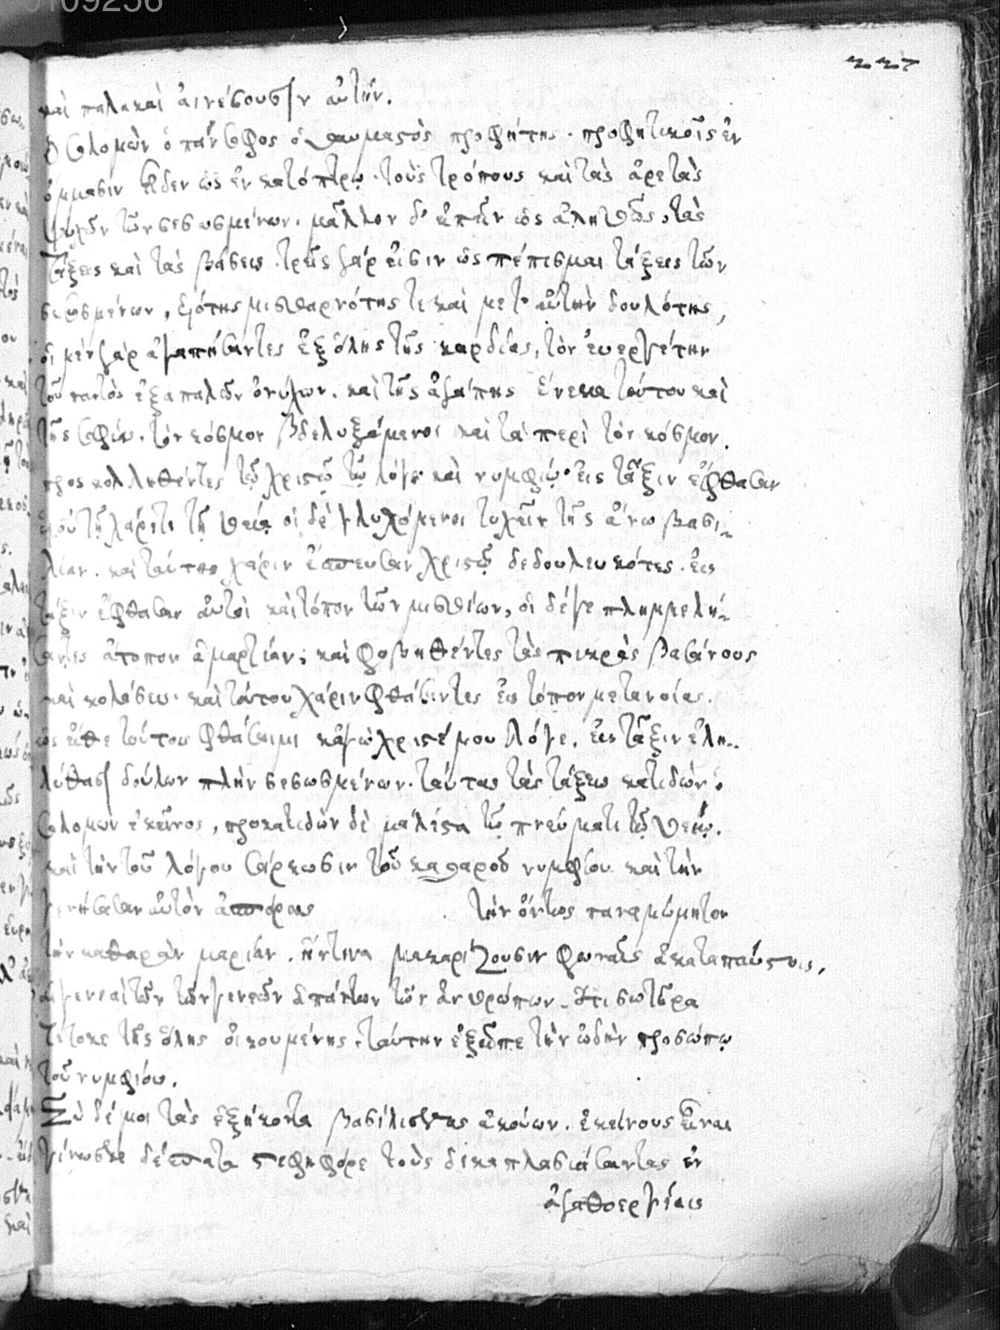 227
καὶ παλακαὶ αἰνέσουσιν αὐτήν.
Ὁ σολομὼν ὁ πάνσοφος ὁ θαυμαστὸς προφήτης. προφητικοῖς ἐν
ὄμμασιν εἶδεν ὡς ἐν κατόπτρῳ. τοὺς τρόπους καὶ τὰς ἀρετὰς
ψυχῶν τῶν σεσωσμένων. μᾶλλον δ' εἰπεῖν ὡς ἀληθῶς, τὰς
τάξεις καὶ τὰς βάσεις. τρεῖς γάρ εἰσιν ὡς πέπεισμαι τάξεις τῶν
σεσωσμένων, υἱότης μισθαρνότης τε καὶ μετ' αὐτὴν δουλότης,
οἱ μὲν γὰρ ἀγαπήσαντες ἐξ ὅλης τῆς καρδίας, τὸν εὐεργέτην
τοῦ παντὸς ἐξ ἀπαλῶν ὀνύχων. καὶ τῆς ἀγάπης ἕνεκα τούτου καὶ
τῆς σοφίας. τὸν κόσμον βδελυξάμενοι καὶ τὰ περὶ τὸν κόσμον.
προσκολληθέντες τῷ χριστῷ τῷ λόγῳ καὶ νυμφίῳ. εἰς τάξιν ἔφθασαν
υἱοῦ τῇ χάριτι τῇ θείᾳ οἱ δὲ γλιχόμενοι τυχεῖν τῆς ἄνω βασι-
λείαν. καὶ ταύτης χάριν ἔσπευσαν χριστῷ δεδουλευκότες. εἰς
τάξιν ἔφθασαν αὐτοὶ καὶ τόπον τῶν μισθίων, οἱ δέ γε πλημμελή-
σαντες ἄτοπον ἁμαρτίαν; καὶ φοβηθέντες τὰς πικρὰς βασάνους
καὶ κολάσεις. καὶ τούτου χάριν φθάσαντες εἰς τόπον μετανοίας.
ὡς εἴθε τούτους φθάσαιμι κἀγὼ χριστέ μου λόγε. εἰς τάξιν ἐλη-
λύθασι δούλων πλὴν σεσωσμένων. ταύτας τὰς τάξεις κατιδὼν ὁ
σολομὼν ἐκεῖνος, προκατιδὼν δὲ μάλιστα τῷ πνεύματι τῷ θείῳ.
καὶ τὴν τοῦ λόγου σάρκωσιν τοῦ καθαροῦ νυμφίου καὶ τὴν
γεννήσασαν αὐτὸν ἀσπόρως τὴν ὄντως παναμώμητον
τὴν καθαρὰν μαρίαν. ἥντινα μακαρίζουσιν φωναῖς ἀκαταπαύστοις,
αἱ γενεαὶ τῶν γενεῶν ἁπάντων τῶν ἀνθρώπων. ὅτι σωτῆρα
τέτοκε τῆς ὅλης οἰκουμένης. ταύτην ἐξεῖπε τὴν ᾠδὴν προσώπῳ
τοῦ νυμφίου.
Σὺ δέ μοι τὰς ἑξήκοντα βασιλίσσας ἀκούων. ἐκείνους εἶναι
γίνωσκε δέσποτα στεφηφόρε τοὺς δεκαπλασιάσαντας ἐν
ἀγαθοεργίαις